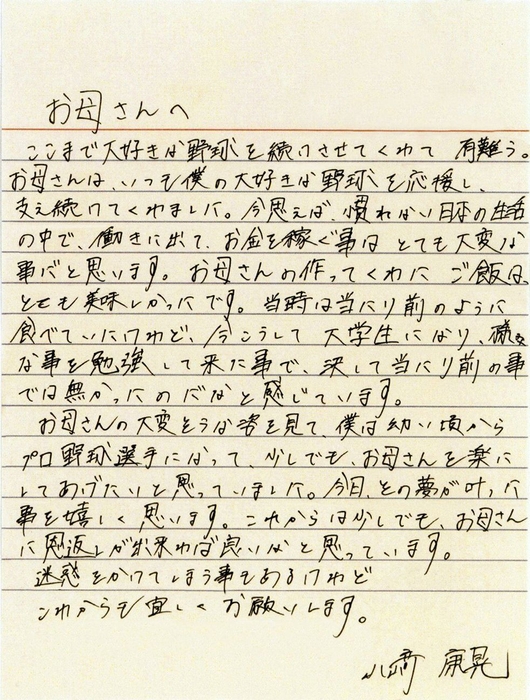 お母さんへ
ここまで大好きな野球を続けさせてくれて 有難う。
お母さんは、いつも僕の大好きな野球を応援し、
支え続けてくれました。今思えば、慣れない日本の生活
の中で、働きに出て、お金を稼ぐ事はとても大変な
事だと思います。お母さんの作ってくれたご飯は、
とても美味しかったです。当時は当たり前のように
食べていたけれど、今こうして大学生になり、様々
な事を勉強して来た事で、決して当たり前の事
では無かったのだなと感じています。
お母さんの大変そうな姿を見て、僕は幼い頃から
プロ野球選手になって、少しでも、お母さんを楽に
してあげたいと思っていました。今日、その夢が叶った
事を嬉しく思います。これからは少しでも、お母さん
に恩返しが出来れば良いなと思っています。
迷惑をかけてしまう事もあるけれど
これからも宜しくお願いします。
山﨑 康晃